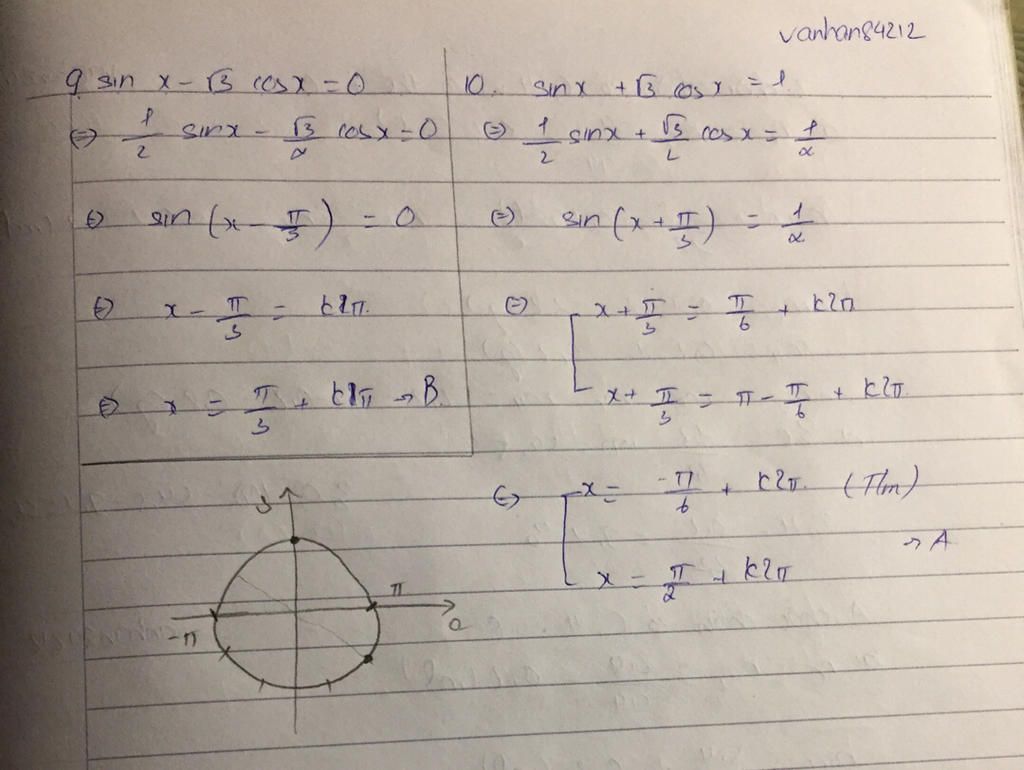 vanhan84212
9 sin x - √3 cos x = 0
⇔ 1/2 sin x - √3/2 cos x = 0
⇔ sin (x - π/3) = 0
⇔ x - π/3 = k2π.
⇔ x = π/3 + k2π → B.
10. sin x + √3 cos x = 1.
⇔ 1/2 sin x + √3/2 cos x = 1/2
⇔ sin (x + π/3) = 1/2
⇔ x + π/3 = π/6 + k2π
x + π/3 = π - π/6 + k2π
⇔ x = -π/6 + k2π. (T/m)
→ A
x = π/2 + k2π
π
-π